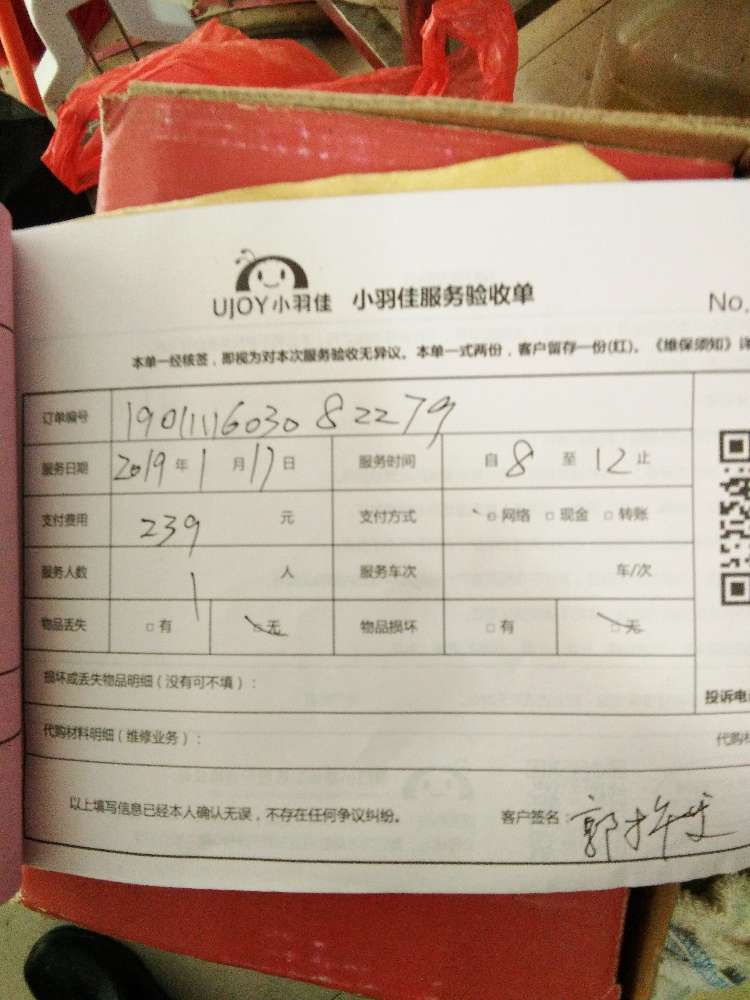 UJOY小羽佳 小羽佳服务验收单 No.
本单一经核签，即视为对本次服务验收无异议。本单一式两份，客户留存一份(红)。《维保须知》详
订单编号 1901116030 82279
服务日期 2019 年 1 月 17 日 服务时间 自 8 至 12 止
支付费用 239 元 支付方式 网络 现金 转账
服务人数 1 人 服务车次 车/次
物品丢失 有 无 物品损坏 有 无
损坏或丢失物品明细（没有可不填）：
投诉电
代购材料明细（维修业务）：
代购
以上填写信息已经本人确认无误，不存在任何争议纠纷。 客户签名： 郭